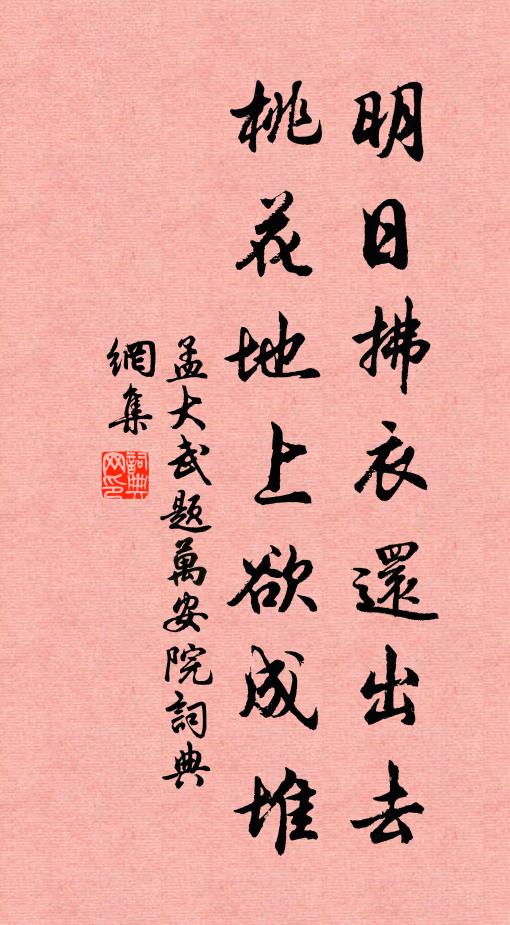 明日拂衣還出去
桃花地上欲成堆
孟大武題萬安院詞典
網集
詞典網印